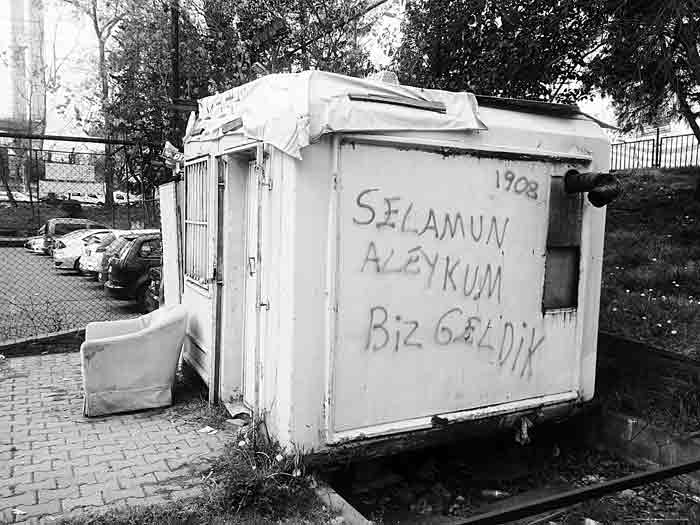 1908
SELAMUN
ALEYKUM
BiZ GELDiK